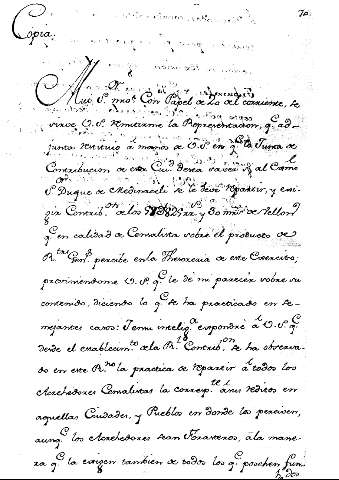 70.
Copia.
Muy S.or mio: Con Papel de 20 del corriente, se
sirve V.S. remitirme la Representacion, q.e ad-
junta restituio á manos de V.S. en q.e la Junta de
Contribucion de esta Ciu.d desea saver si al Exmo
S.or Duque de Medinaceli se le deve repartir, y exi-
gir Contrib.on de los
q.e en calidad de Censalista sobre el producto de
R.tas Gen.s percibe en la Thesoreria de este Exercito;
previniendome V.S. q.e le dé mi parecer sobre su
contenido, diciendo lo q.e se ha practicado en se-
mejantes casos: I en su intelig.a respondré á V.S. q.e
desde el establecim.to de la R.l Contrib.on se ha observa-
do en este R.no la practica de repartir á todos los
Acrehedores Censalistas la corresp.te á sus reditos en
aquellas Ciudades, y Pueblos en donde los perciven,
aunq.e los Acrehedores sean forasteros, á la mane-
ra q.e la exigen tambien de todos los q.e posehen fun-
dos